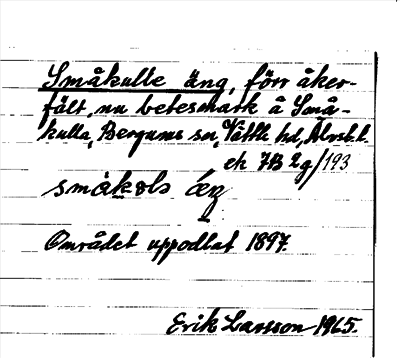 Småkulle äng, förr åker-
fält, nu betesmark å Små-
kulla, Bergums sn, Vättle hd, Älvsb. l.
ek 7B 2g/193
småkols äŋ
Området uppodlat 1897.
Erik Larsson 1965.